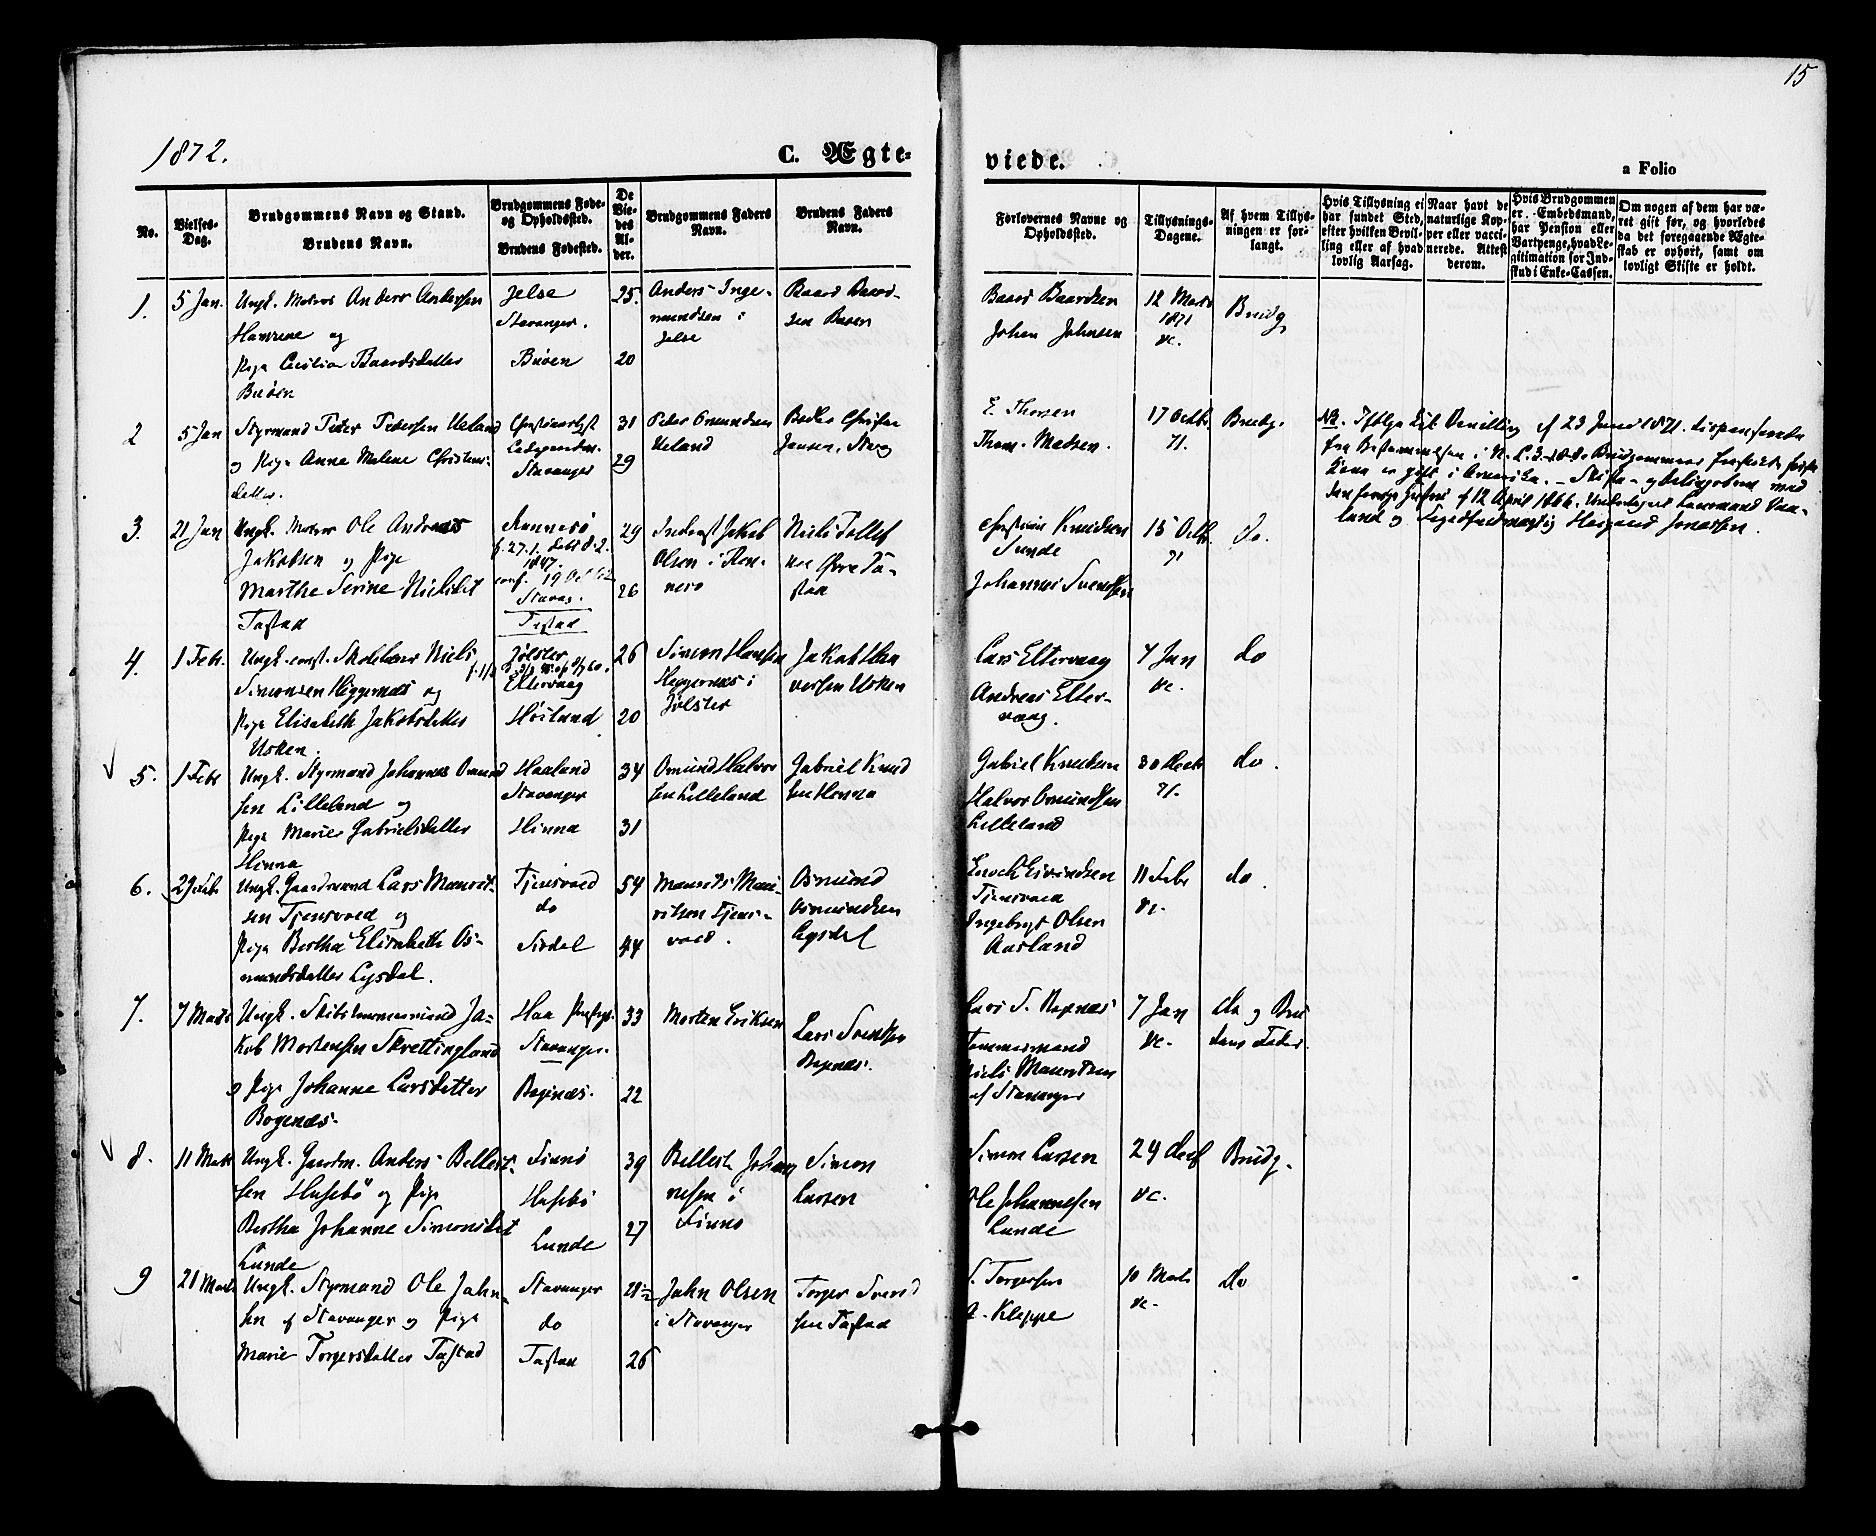 15
1872.
C. Ægte-
viede.
a Folio
No.
Vielses-
Dag.
Brudgommens Navn og Stand.
Brudens Navn.
Brudgommens Føde-
og Opholdssted.
Brudens Fødested.
De
Vie-
des
Al-
der.
Brudgommens Faders
Navn.
Brudens Faders
Navn.
Forlovernes Navne og
Opholdssted.
Tillysnings-
Dagene.
Af hvem Tillys-
ningen er for-
langt.
Hvis Tillysning ei
har fundet Sted,
efter hvilken Bevil-
ling eller af hvad
lovlig Aarsag.
Naar havt de
naturlige Kop-
per eller vacci-
nerede. Attest
derom.
Hvis Brudgommen
er Embedsmand,
har Pension eller
Vartpenge, hvad Le-
gitimation for Ind-
skud i Enke-Cassen.
Om nogen af dem har væ-
ret gift før, og hvorledes
da det foregaaende Ægte-
skab er ophørt, samt om
lovligt Skifte er holdt.
1.
5 Jan.
Ungk. Matros Anders Andersen
og
Pige Cecilia Baardsdatter
Buøen
Jelse
Stavanger.
Buøen
25.
20
Anders Inge-
mundsen i
Jelse
Baard Baard-
sen Buøen
Baard Baardsen
Johan Johnsen
12 Marts
1871
Brudg.
2
5 Jan
Styrmand Peder Pedersen Ueland
og Pige Anne Malene Christens-
datter.
Stavanger
31
29
Peder Omundsen
Ueland
E. Thorsen
Thom. Madsen.
17 Octbr.
71.
Brudg.
NB. Ifølge Kgl. Bevilling af 23 Juni 1871
3.
21 Jan
Ungk. Matros Ole Andreas
Jakobsen og Pige
Marthe Serine Nielsdat
Tastad
Rennesø
f. 27.1. døbt 8.2.
1847.
Stavag.
Tastad
29
26
Jakob
Olsen i Ren-
nesø
Niels Tollef
sen Øvre Ta-
stad
Christian Knudsen
Sunde
Johannes Svendsen
15 Octb.
71
do.
4.
1 Febr.
Ungk. const. Skolelærer Niels
Simonsen Heggernæs og
Pige Elisabeth Jakobsdatter
Usken.
Jølster
Eltervaag
Høiland
26
20
Simon Hansen
Heggernæs i
Jølster
Jakob Hal
vorsen Usken
Lars Eltervaag
Andreas Elter-
vaag.
7 Jan
do
5.
1 Febr
Ungk. Styrmand Johannes Osmund
sen Lilleland og
Pige Maries Gabrielsdatter
Hinna
Haaland
Stavanger
Hinna
34
31
Osmund Halvor
sen Lilleland
Gabriel Knud
sen Hinna
Gabriel Knudsen
Halvor Osmundsen
Lilleland
30 Decbr
71.
do.
6.
Ungk. Gaardmand Lars Mauridt-
sen Tjensvold og
Pige Bertha Elisabeth Os-
mundsdatter Lysdal.
Tjensvold
do
Sirdal
54
44
Mauritz Mau-
ritsen Tjens-
vold.
Osmund
Osmundsen
Lysdal
Enoch Eivindsen
Tjensvold
Ingebrigt Olsen
Aasland
11 Febr
do.
7.
7 Marts
Ungk. Skibstømmermand Ja-
kob Mortensen Skrettingland
og Pige Johanne Larsdatter
Bogenæs.
Haa Præstgj.
Stavanger.
Bogenæs.
33
22
Morten Eriksen
Lars Svendsen
Bogenæs.
Lars S. Bogenæs
Tømmermand
Niels Mauritsen
af Stavanger
7 Jan
do og Bru
dens Fader.
8.
11 Marts
Ungk. Gaardm. Anders Bellest-
sen Husebö og Pige
Bertha Johanne Simonsdat
Lunde
Finnö
Husebö
Lunde
39
27
Bellest Johan
nesen i
Finnö
Simon
Larsen
Simon Larsen
Ole Johannesen
Lunde
Brudg.
9
21 Marts
Ungk. Styrmand Ole John-
sen af Stavanger og Pige
Marie Torgersdatter Tastad
Stavanger
do
Tastad
28½
26
John Olsen
i Stavanger
Torger Svend
sen Tastad
S. Torgersen
A. Kleppe
10 Marts
do